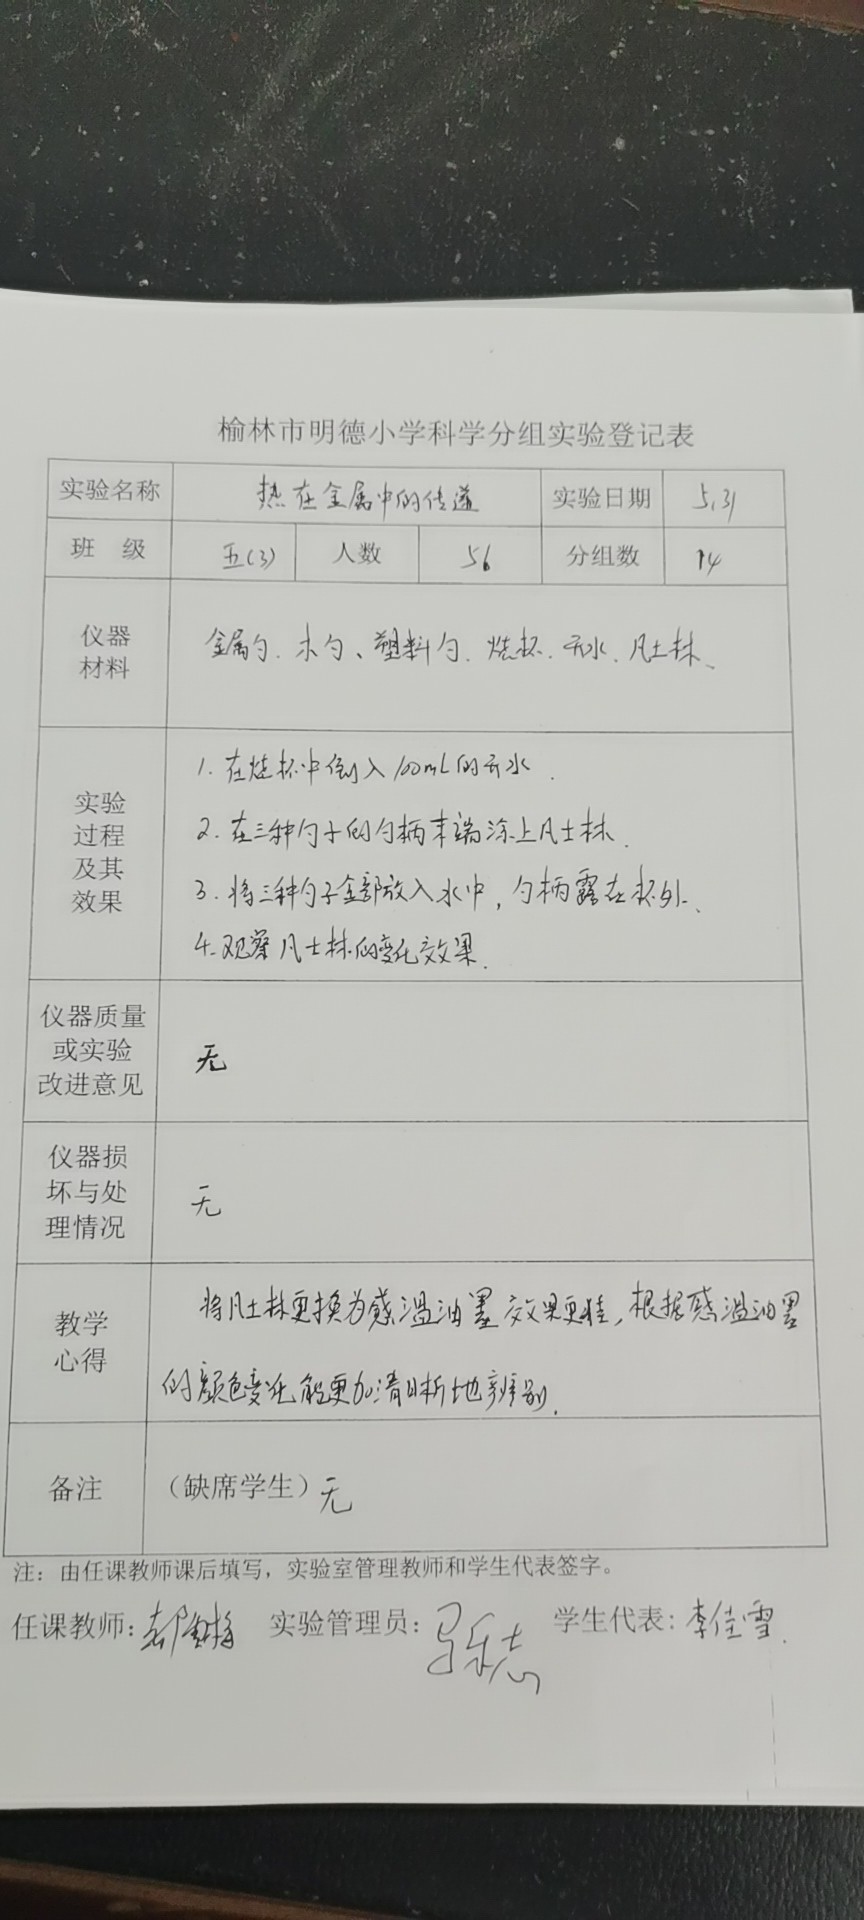 榆林市明德小学科学分组实验登记表
实验名称 热在金属中的传递 实验日期 5.31
班 级 五(3) 人数 56 分组数 14
仪器
材料
金属勺、木勺、塑料勺、烧杯、开水、凡士林、
实验
过程
及其
效果
1.在烧杯中倒入100mL的开水.
2.在三种勺子的勺柄末端涂上凡士林.
3.将三种勺子全部放入水中,勺柄露在杯外、
4.观察凡士林的变化效果.
仪器质量
或实验
改进意见
无
仪器损
坏与处
理情况
无
教学
心得
将凡士林更换为感温油墨效果更佳,根据感温油墨
的颜色变化能更加清晰地辨别.
备注 (缺席学生)无
注:由任课教师课后填写,实验室管理教师和学生代表签字。
任课教师: 实验管理员: 学生代表:李佳雪.